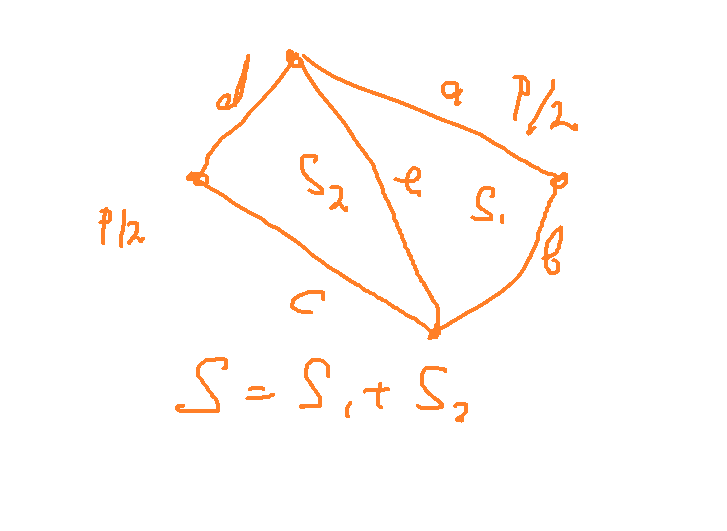 d
a P/2
S₂ e S₁
P/2
b
c
S = S₁ + S₂